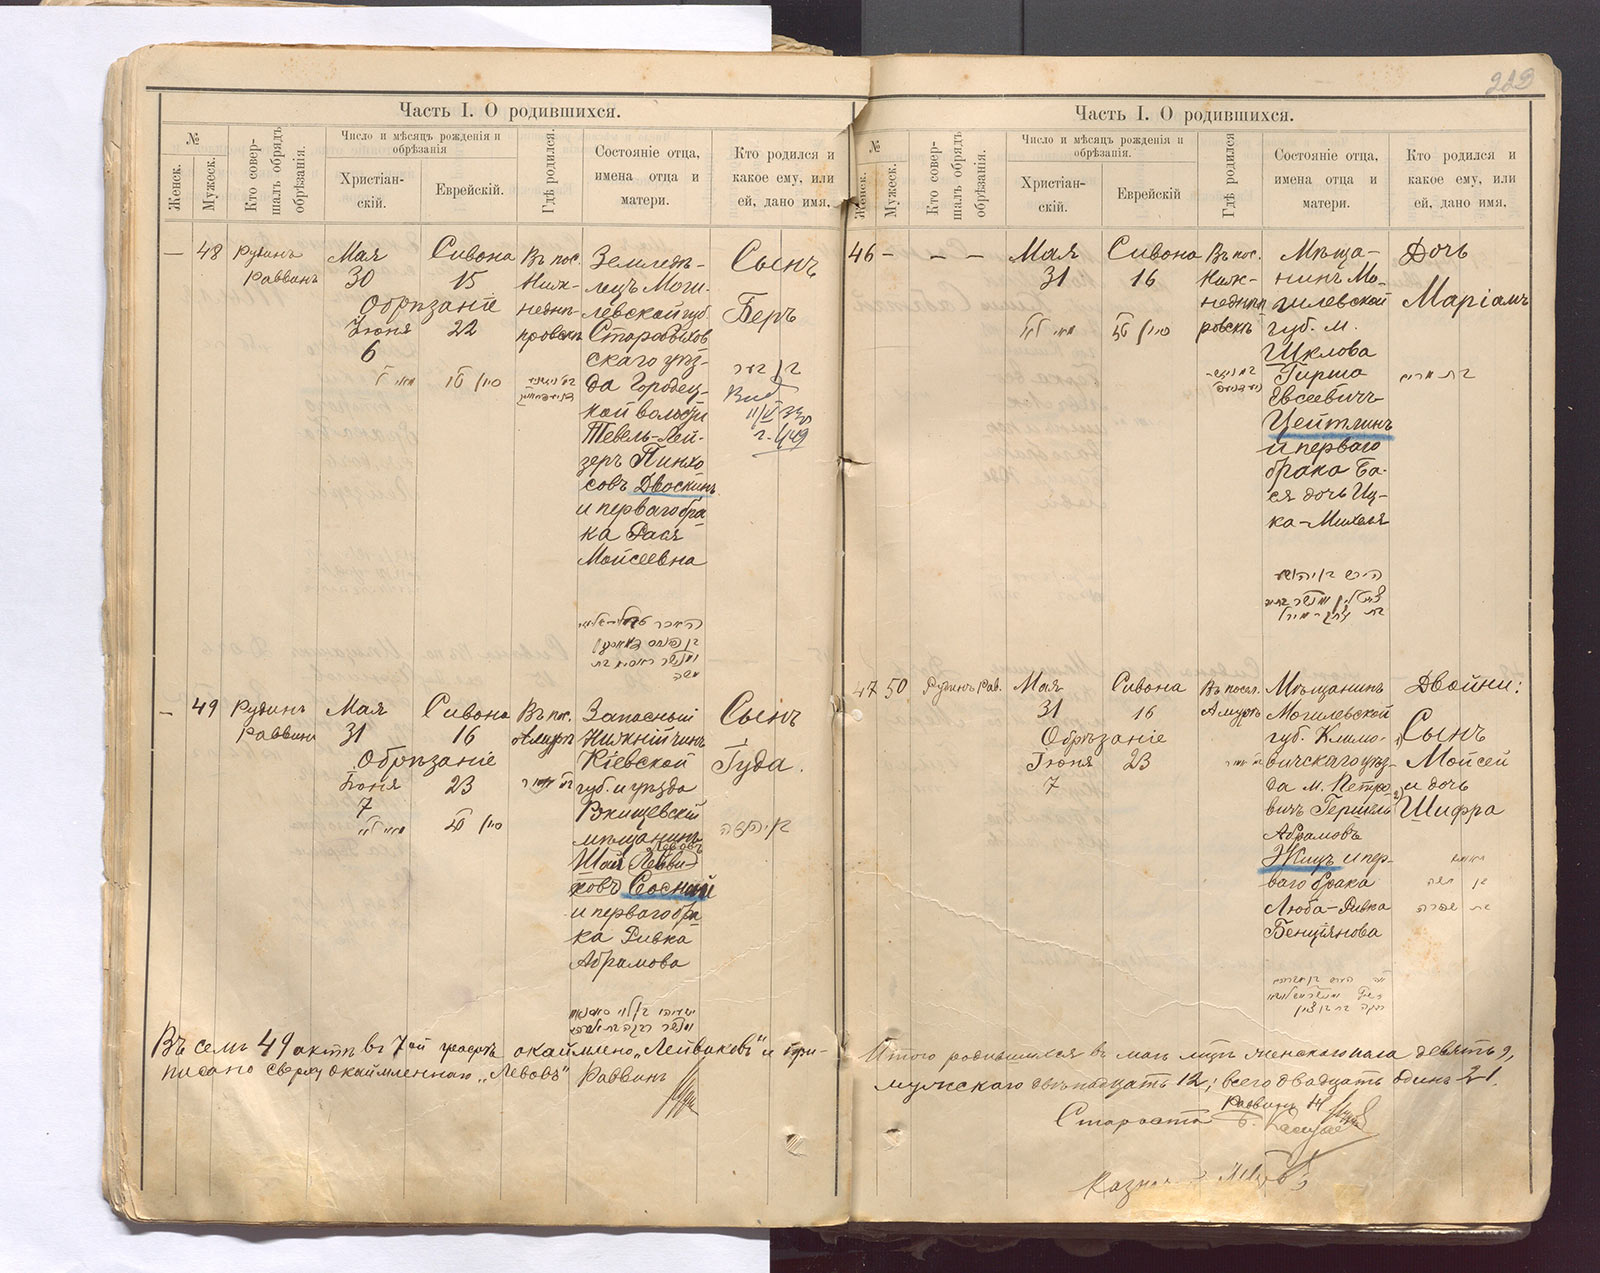 222
Часть I. О родившихся.
№
Женск.
Мужеск.
Кто совер-
шалъ обрядъ
обрѣзанія.
Число и мѣсяцъ рожденія и
обрѣзанія
Христіан-
скій.
Еврейскій.
Гдѣ родился.
Состояніе отца,
имена отца и
матери.
Кто родился и
какое ему, или
ей, дано имя,
— 48
Рубинъ
Раввинъ
Мая
30
Сивона
15
Обрѣзаніе
Іюня
6
22
Въ пос.
Ниж-
неднѣ-
провскъ
Земледѣ-
лецъ Моги-
левской губ.
Старобыхов
скаго уѣз-
да Городец-
кой волости
Тевель-Лей-
зеръ Пинхо
совъ Двоскинъ
и перваго бра
ка Рася
Мойсеевна
Сынъ
Беръ
בן בער
משה
— 49
Рубинъ
Раввинъ
Мая
31
Сивона
16
Обрѣзаніе
Іюня
7
23
Въ пос.
Амуръ
Запасный
нижній чинъ
Кіевской
губ. и уѣзда
Ржищевскій
мѣщанинъ
Левовъ
Шая Лейви-
ковъ Сосный
и перваго бра
ка Ривка
Абрамова
Сынъ
Іуда.
בן יהודה
Въ семъ 49 актѣ въ 7ой графѣ окаймлено „Лейвиковъ" и при-
писано сверху окаймленнаго „Левовъ" Раввинъ
Часть I. О родившихся.
№
Женск.
Мужеск.
Кто совер-
шалъ обрядъ
обрѣзанія.
Число и мѣсяцъ рожденія и
обрѣзанія.
Христіан-
скій.
Еврейскій
Гдѣ родился
Состояніе отца,
имена отца и
матери.
Кто родился и
какое ему, или
ей, дано имя,
46 — — —
Мая
31
Сивона
16
Въ пос.
Ниж-
неднѣп
ровскъ
Мѣща-
нинъ Мо-
гилевской
губ. м.
Шклова
Гирша
Евсеевичъ
Цейтлинъ
и перваго
брака Ба-
ся дочь Иц-
ка-Михеля
Дочь
Маріамъ
בת מרים
הירש בן יהושע
47 50
Рубинъ Рав.
Мая
31
Сивона
16
Обрѣзаніе
Іюня
7
23
Въ посел.
Амуръ
Мѣщанинъ
Могилевской
губ. Климо-
вичскаго уѣз-
да м. Петро
вичъ Гершель
Абрамовъ
Жицъ и пер-
ваго брака
Люба-Ривка
Бенціянова
Двойни:
Сынъ
Мойсей
и дочь
Шифра
בן משה
בת שפרה
רבקה בת בן ציון
Итого родившихся въ маѣ мѣс. женскаго пола девять 9,
мужскаго двѣнадцать 12; всего двадцать одинъ 21.
Раввинъ
Староста